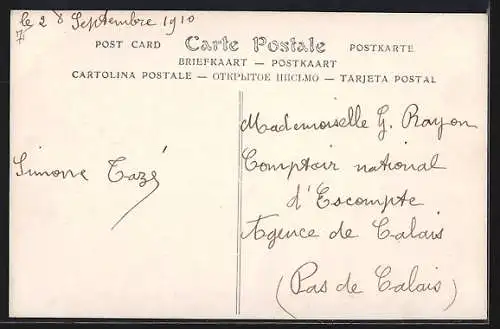 le 28 Septembre 1910
7
POST CARD Carte Postale POSTKARTE
BRIEFKAART — POSTKAART
CARTOLINA POSTALE — ОТКРЫТОЕ ПИСЬМО — TARJETA POSTAL
Mademoiselle G. Rayon
Comptoir national
d'Escompte
Agence de Calais
(Pas de Calais)
Simone Tazé